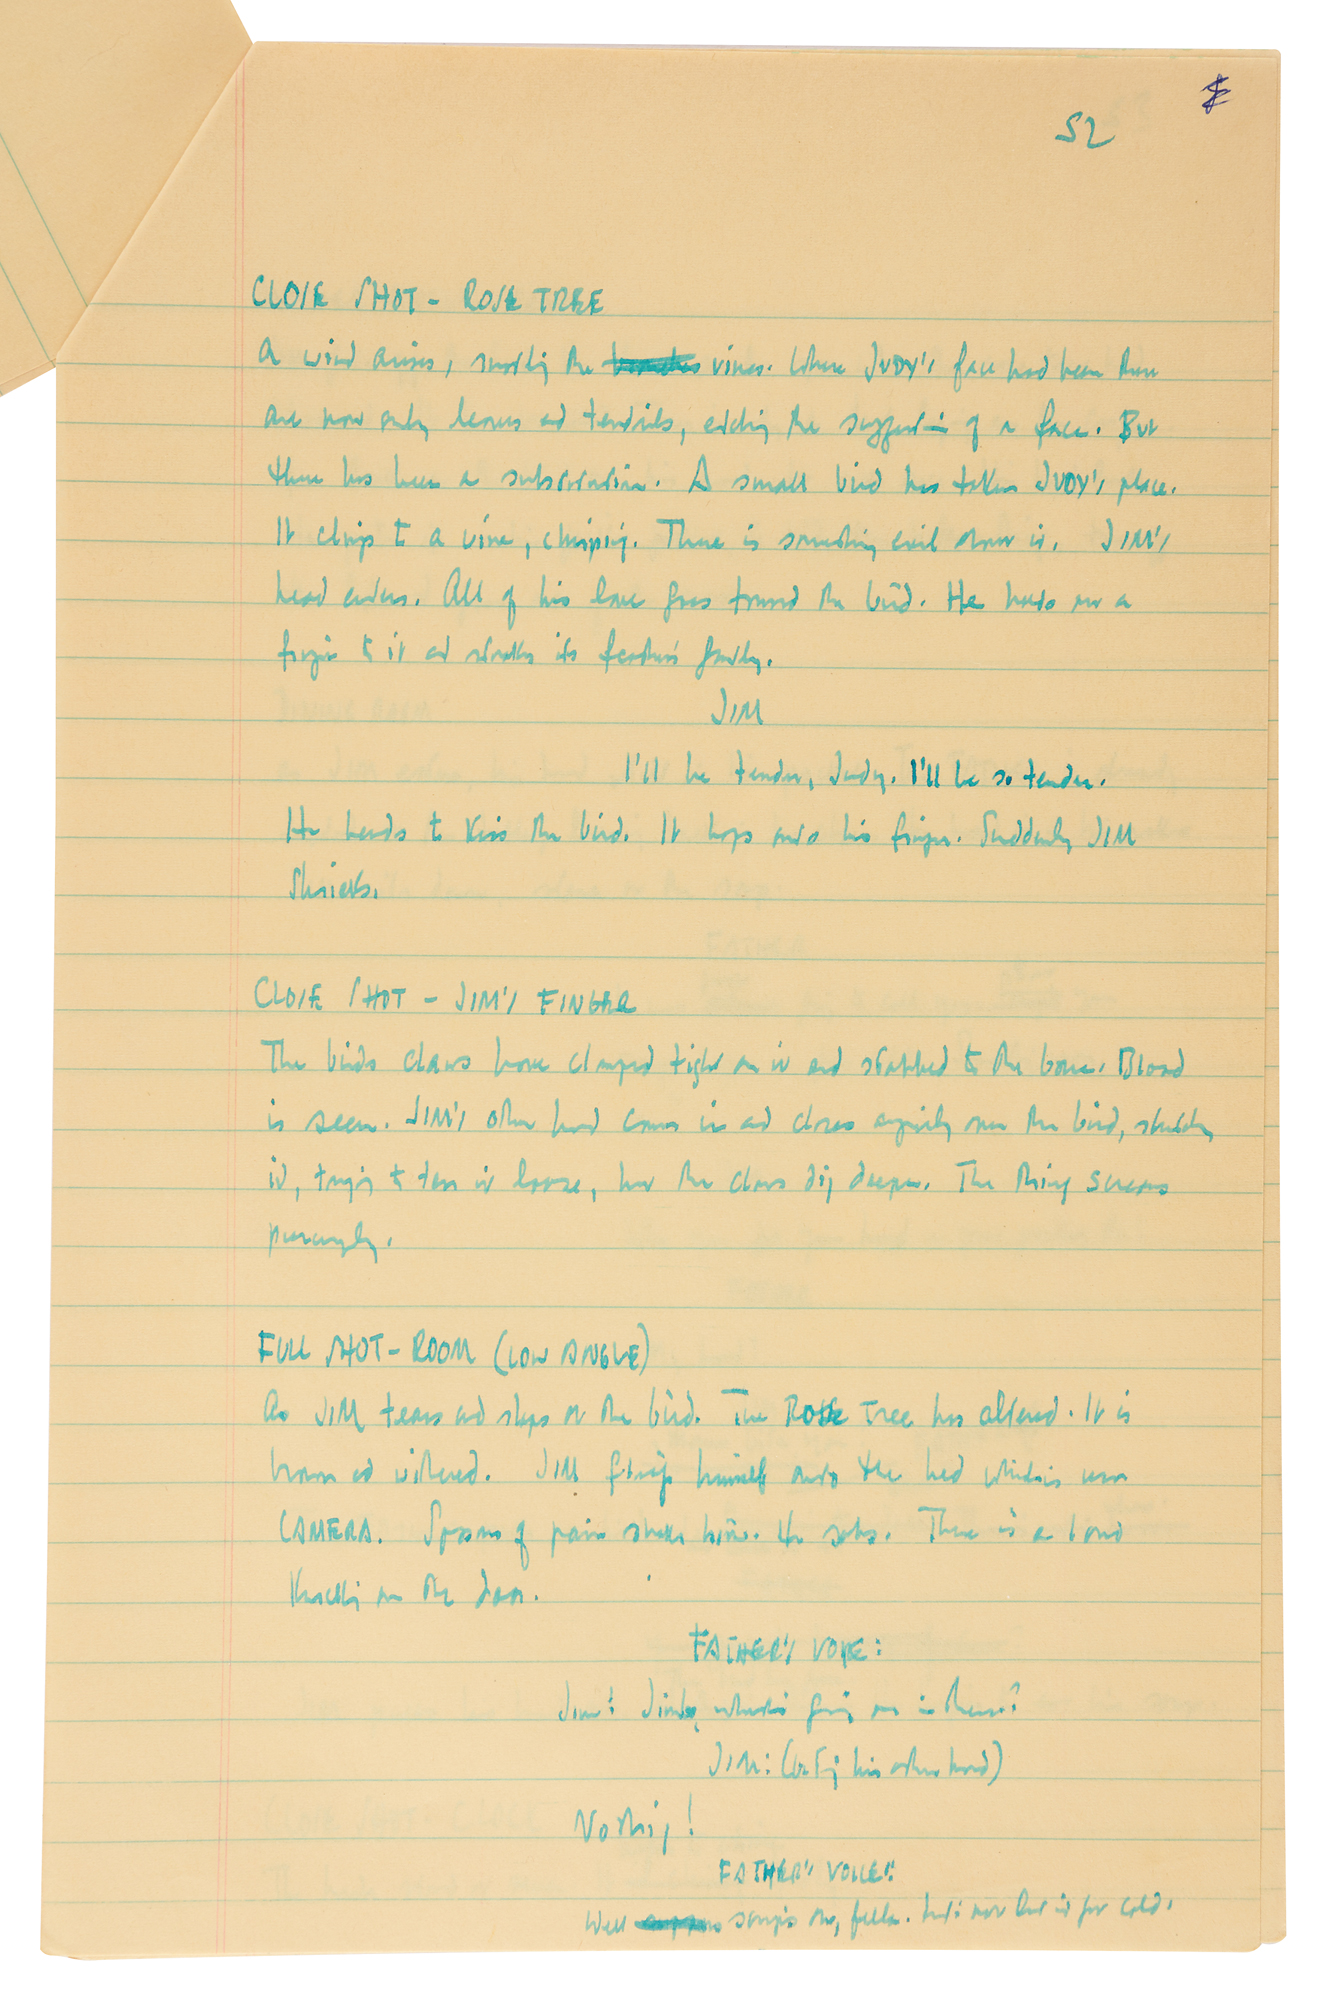 52
CLOSE SHOT - ROSE TREE
A wind arises, the vines. Where JUDY'S face had been there
are now only leaves and tendrils, the suggestion of a face. But
there has been a substitution. A small bird has taken JUDY'S place.
It clings to a vine, chirping. There is something evil about it. JIM'S
head enters. All of his love goes toward the bird. He holds out a
finger to it and strokes its feathers gently.
JIM
I'll be tender, Judy. I'll be so tender.
He bends to kiss the bird. It hops onto his finger. Suddenly JIM
shrieks.
CLOSE SHOT - JIM'S FINGER
The birds claws have clamped tight on it and stabbed to the bone. Blood
is seen. JIM'S other hand comes in and closes angrily over the bird,
it, trying to tear it loose, but the claws dig deeper. The thing screams
piercingly.
FULL SHOT - ROOM (LOW ANGLE)
As JIM tears and slaps at the bird. The Rose Tree has altered. It is
brown and withered. JIM flings himself onto the bed which is near
CAMERA. Spasms of pain shake him. He sobs. There is a loud
knocking on the door.
FATHER'S VOICE:
Jim? Jimbo, what's going on in there?
JIM: (biting his other hand)
Nothing!
FATHER'S VOICE:
Well on, fella. for cold.